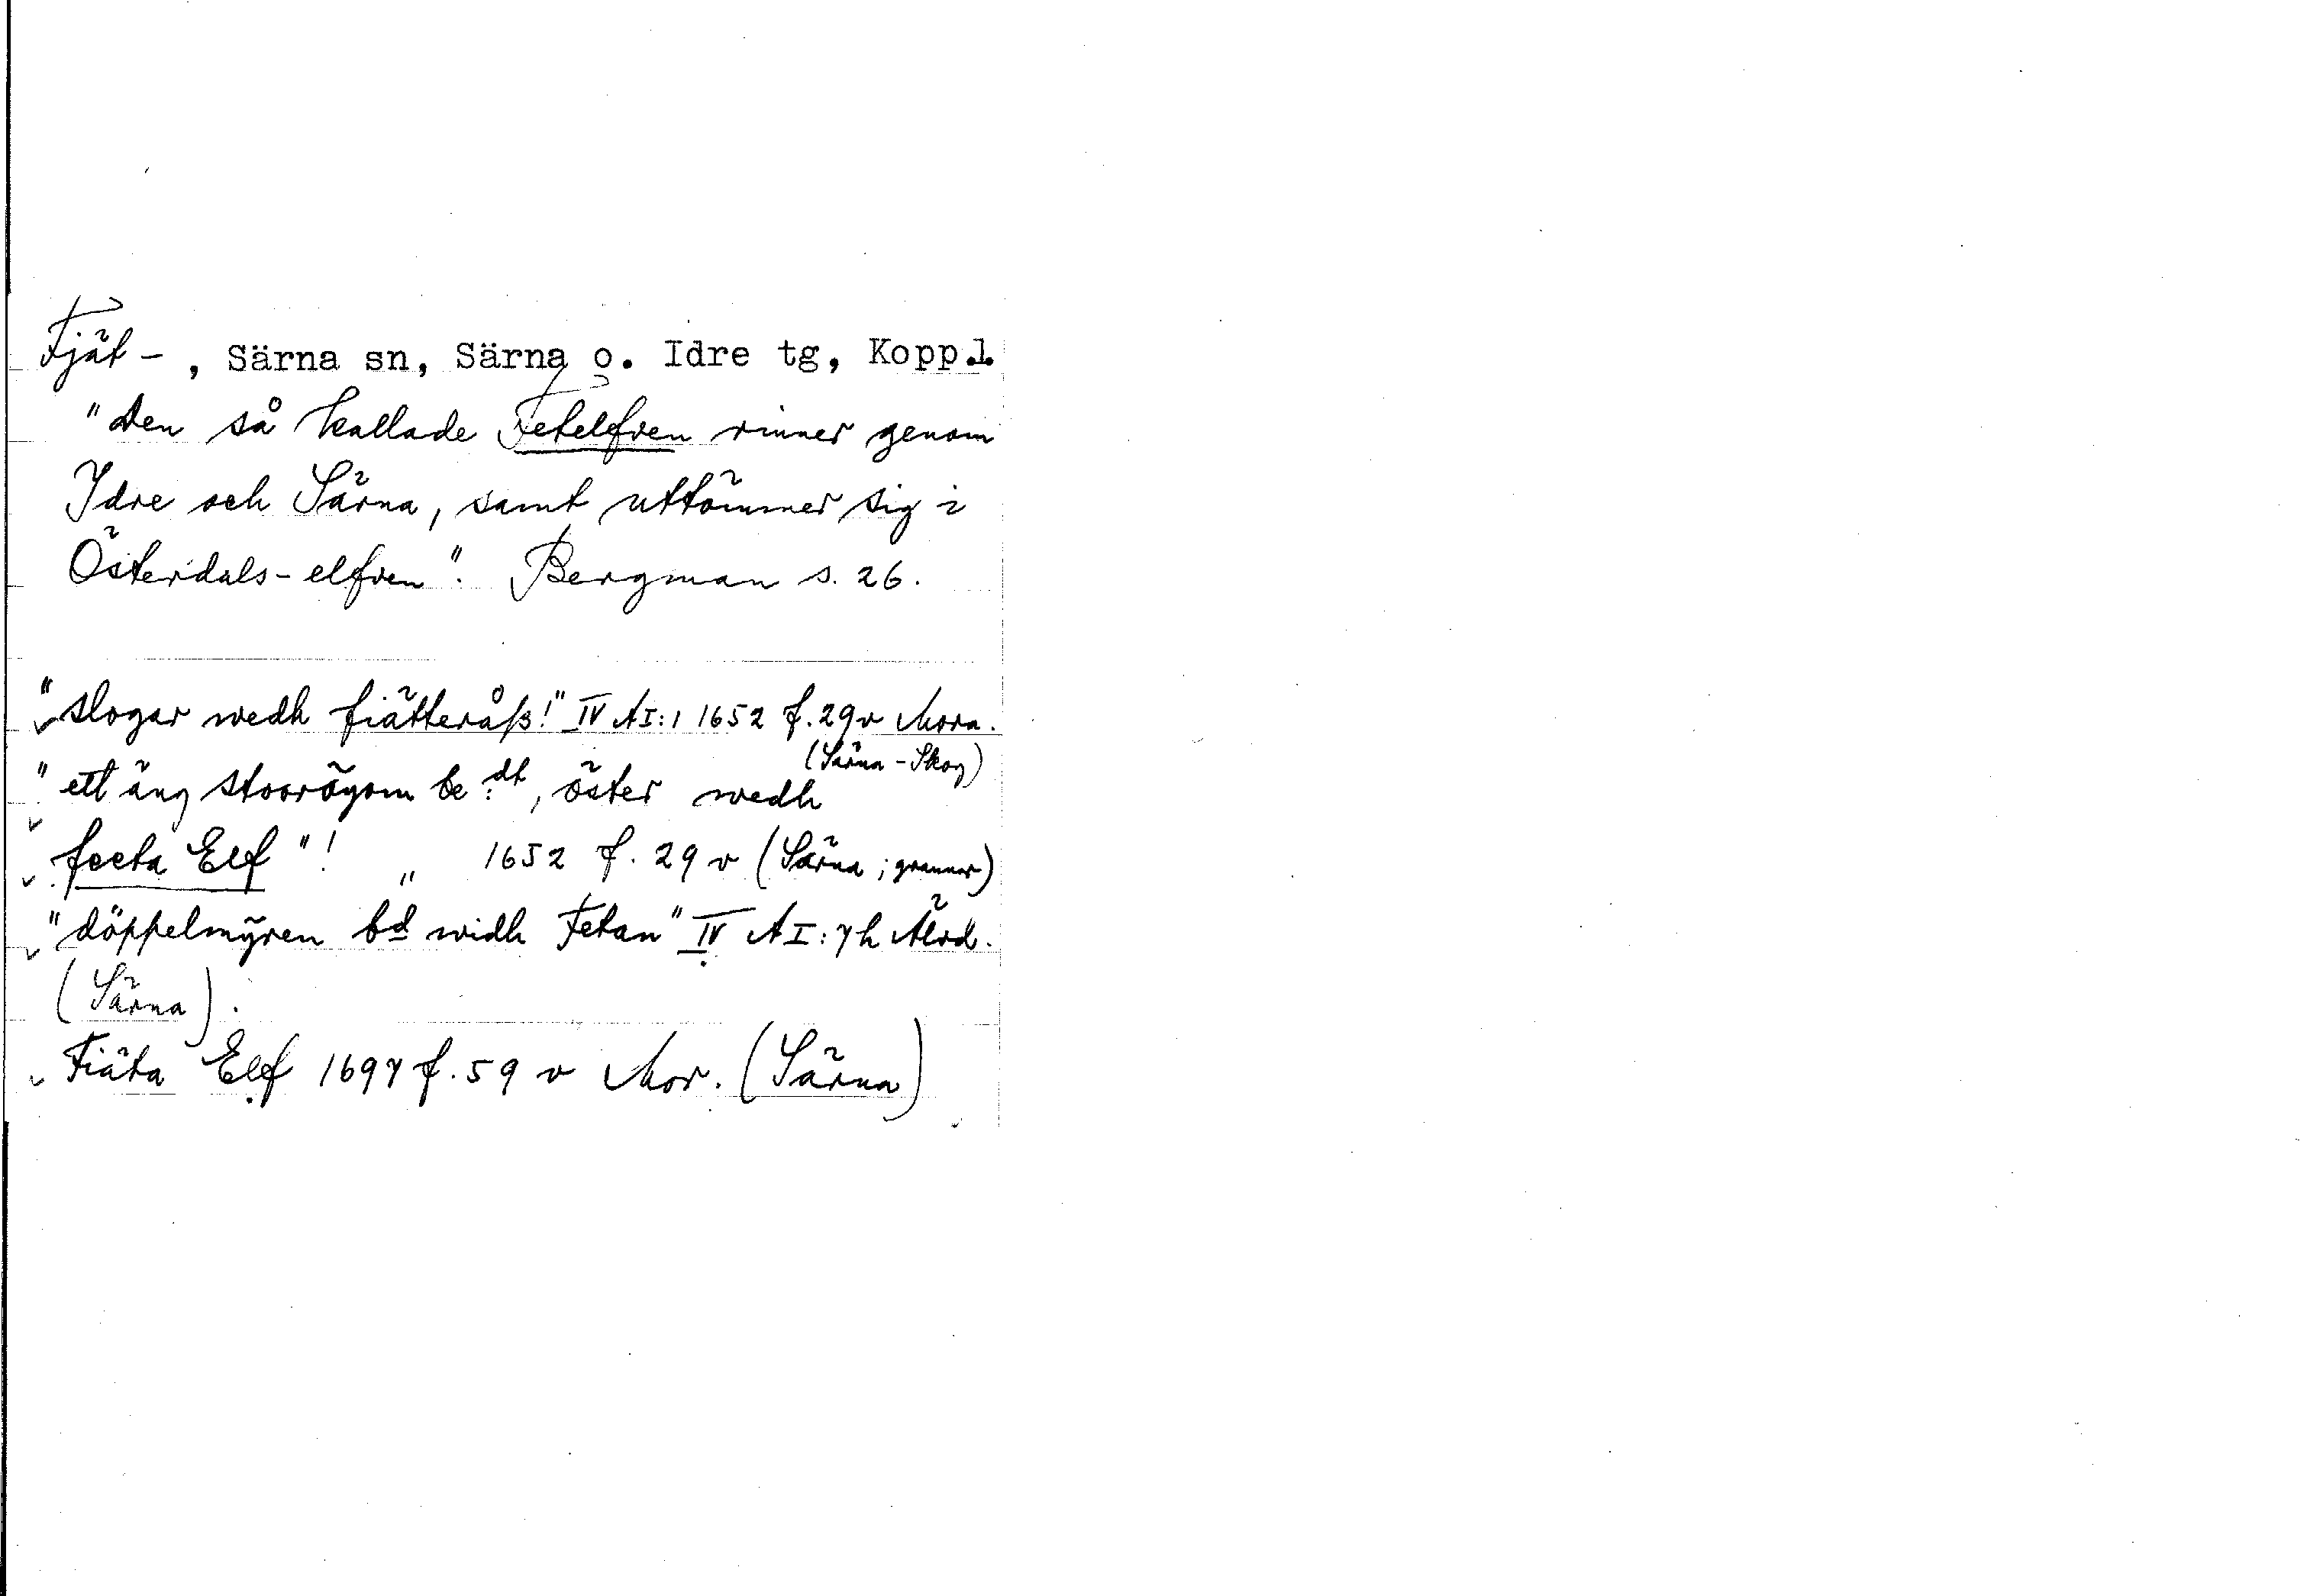 Fjät-, Särna sn, Särna o. Idre tg, Kopp.l.
"den så kallade Fetelfven rinner genom
Idre och Särna, samt uttömmer sig i
Österdals-elfven". Bergman s. 26.
"slogar wedh fiätteråß!" IV AI:1 1652 f. 29v Mora.
(Särna-Skog)
"ett äng stoorögom be:dt, öster wedh
feeta Elf"! " 1652 f. 29 v (Särna; grannar)
"döppelmÿren bd widh Fetan" IV AI:7h Älvd.
(Särna).
Fiäta Elf 1697 f. 59 v Mor. (Särna)